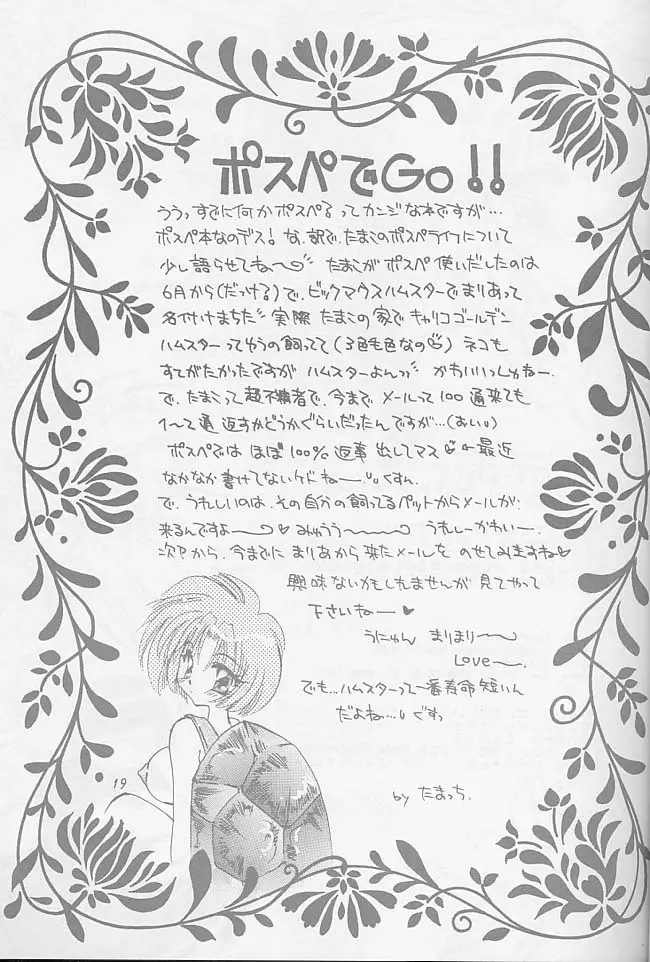 ポスペでGo!!
ううっすでに何かポスペるってカンジな本ですが…
ポスペ本なのデス! な、部で、たまこのポスペライフについて
少し語らせてね〜 たまこが ポスペ 使いだしたのは
6月から(だっける)で、ビックマウスハムスターでまりあって
名付けまちた 実際 たまこの家でキャリコゴールデン
ハムスターってゆうの飼ってて(3色毛色なの) ネコも
すてがたかったですが ハムスターよんっ かわいいっしゅねー.
で、たまこって超不精者で、今まで メールって100通来ても
1〜て通 返すかどうかぐらいだったんですが…(おい)
ポスペでは ほぼ 100%返事 出してマス ←最近
なかなか書けてないケドねー くすん.
で、うれしいのは、その自分の飼ってるペットからメールが
来るんですよ〜♡ みゅうう〜〜 うれしーかわいー.
次Pから、今までに まりあから来たメールを のせてみますね♡
興味ないかもしれませんが 見てやって
下さいねー♥
うにゅん まりまり〜
Love〜.
でも…ハムスターって一番寿命短いん
だよね… ぐすっ
19
by たまっち.